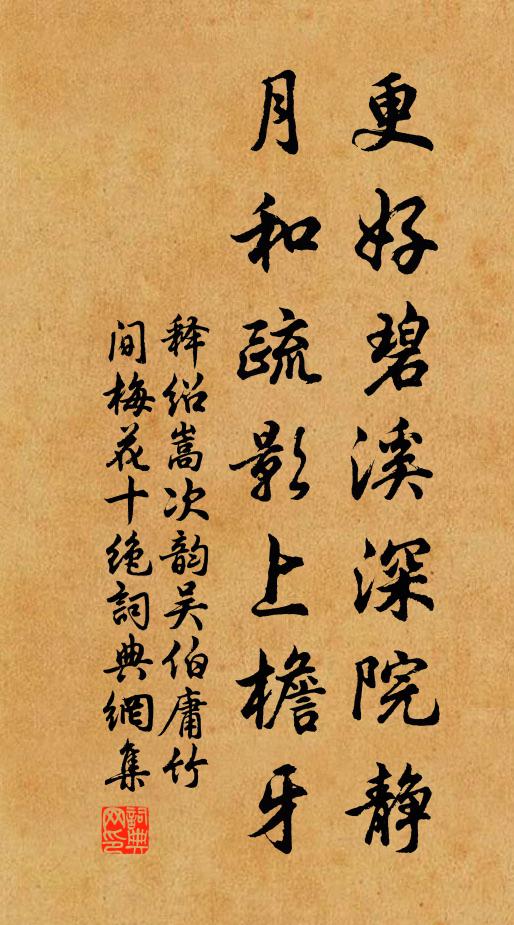 更好碧溪深院静
月和疏影上檐牙
释绍嵩次韵吴伯庸竹
间梅花十绝詞典網集
詞典
网印